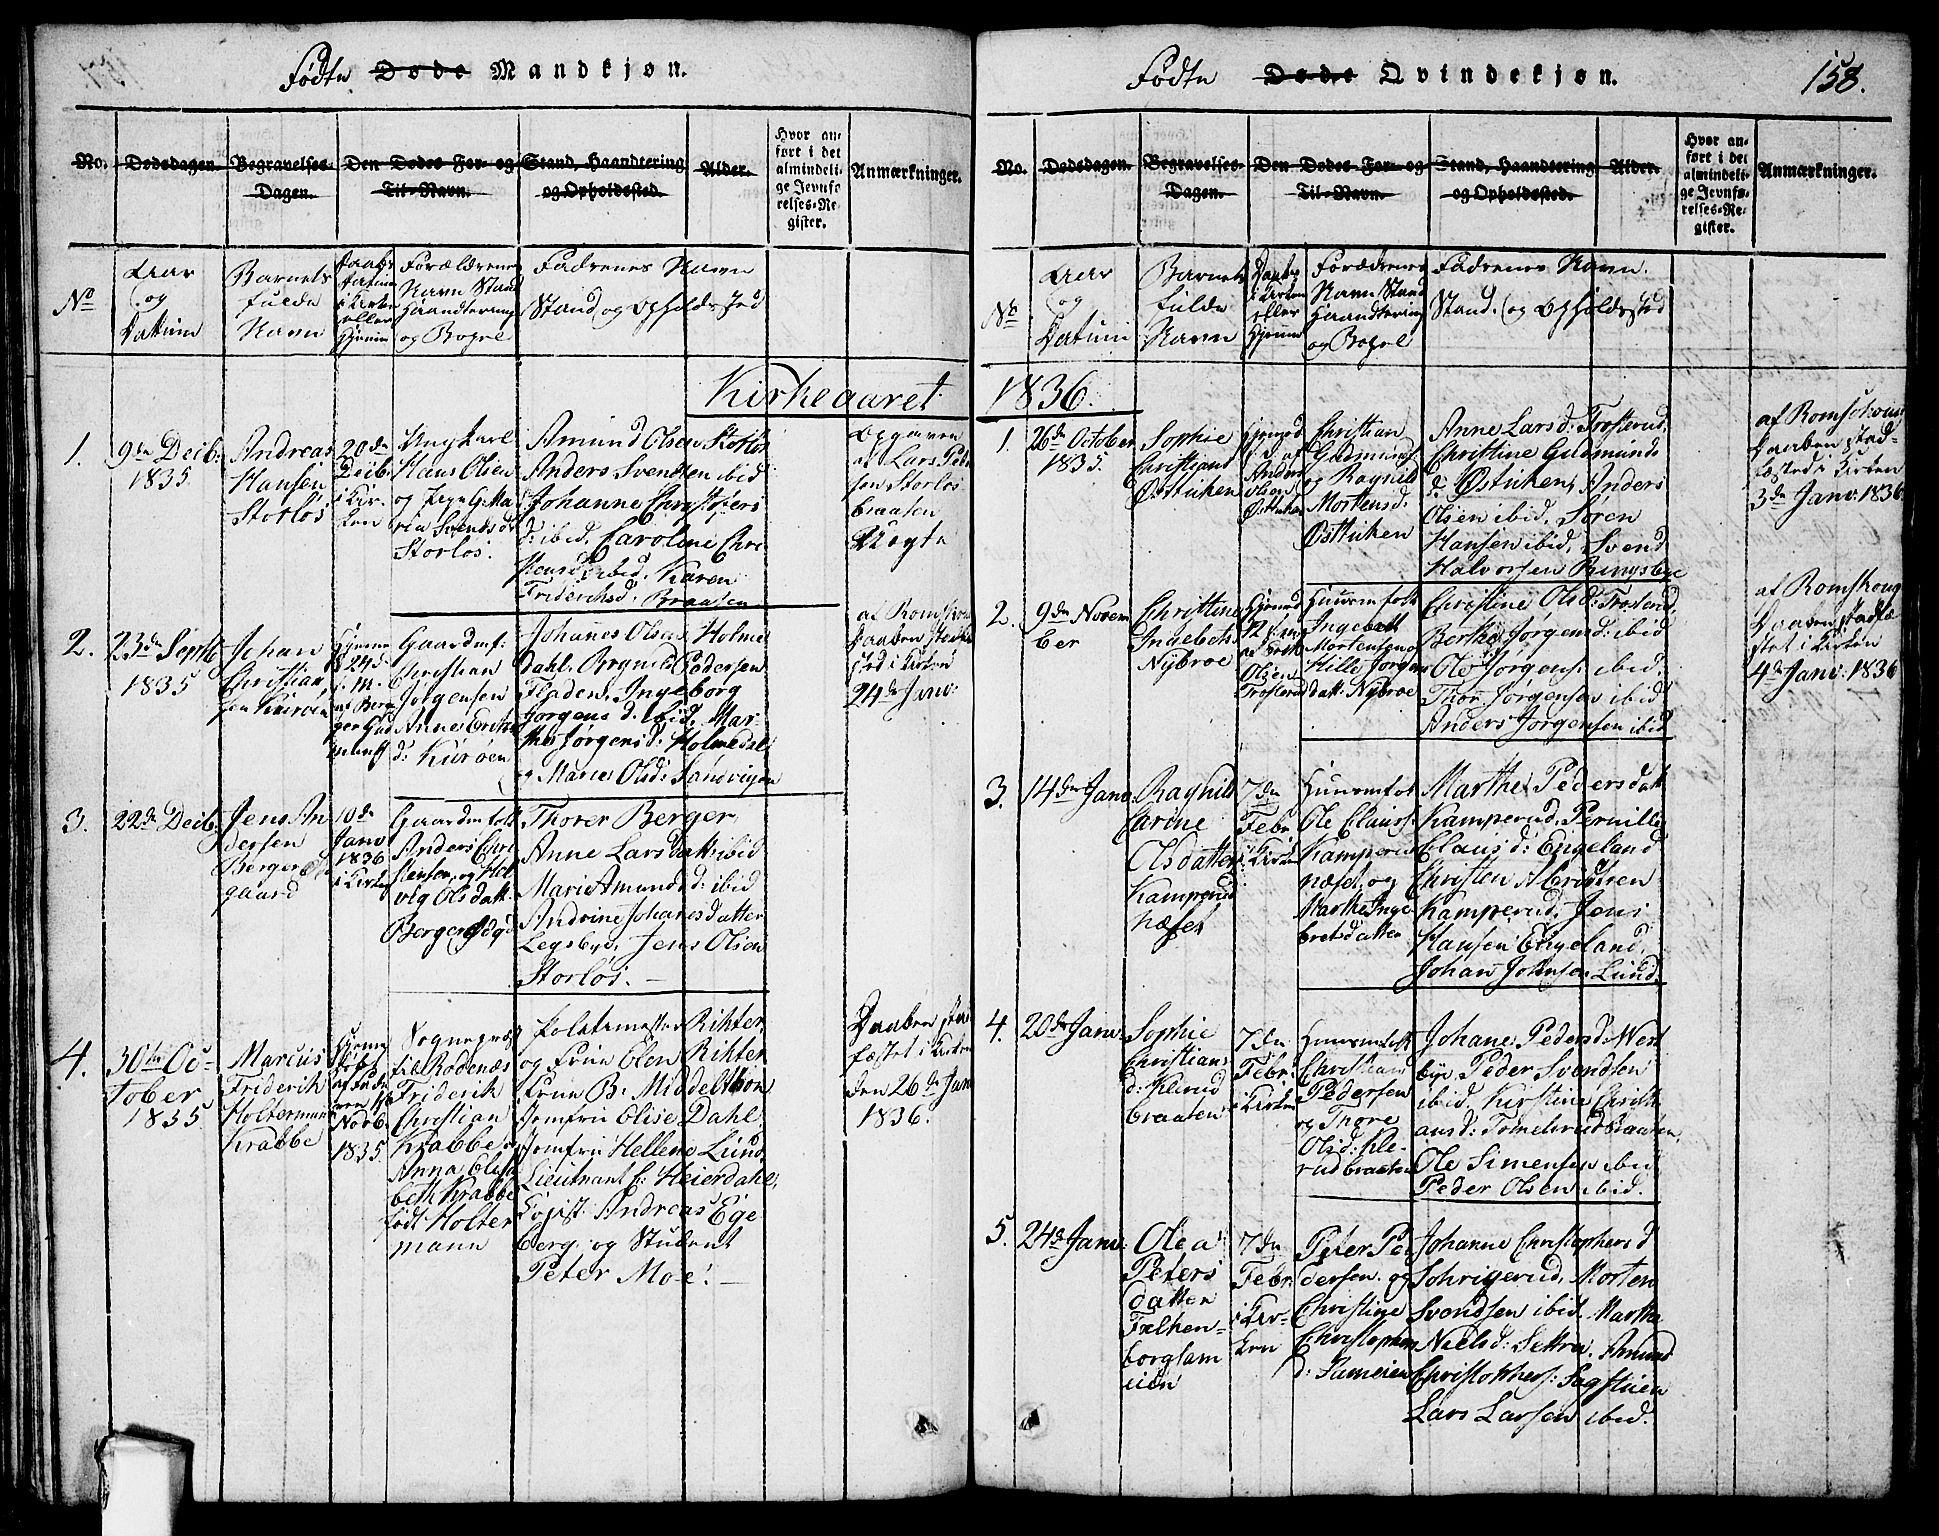 Fødte Døde Mandkjøn.
No.
Dødsdagen.
Begravelses-
Dagen.
Den Dødes For- og
Til-Navn.
Stand, Haandtering
og Opholdssted.
Alder.
Hvor an-
ført i det
almindeli-
ge Jevnfø-
relses-Re-
gister.
Anmærkninger.
No
Aar
og
Dattum
Barnets
fulde
Navn
Daabs
Datum
i Kirken
eller
Hjemme
Forældrenes
Navn Stand
Haandtering
og Bopel
Fadrenes Navn
Stand og Opholdssted
Kirkeaaret
1.
9de Decb:
1835
Andreas
Hansen
Storløs
20de
Decb
i Kir-
ken
Ungkarl
Hans Olsen
og Pige
Maria Svendsd
Storløs.
Amund Olsen Storløs
Anders Svendsen ibid
Johanne Christophers
d: ibid, Caroline Chri-
ibid. Karen
Friderichsd. Braaten
Opgaven
af Lars Pet
sen Storløs
braaten
Uægte
2.
23de Septb
1835
Johan
Christian
sen Kurøen
Hjemme
Gaardmf:
Christian
Jørgensen
Anne
d: Kurøen
Johannes Olsen Holme
dahl. Brynild Pedersen
Fladen, Ingeborg
Jørgens d. ibid. Mar-
the Jørgensd: Holmedal
og Maria Olsd: Sandvigen
af Romskou
Daaben stadfæ
sted i Kirken
24de Janv:
3.
22de Decb.
Jens An
dersen
Berger
gaard
10de
Janv
1836
i Kirken
Gaardmfolk
Anders Chri
stensen og Hel
vig Olsdatt.
Berger
Thorer Berger,
Anne Larsdatt: ibid
Marie Amunds d: ibid
Andrine Johanesdatter
Legsbye, Jens Olsen
Storløs. —
4.
30te Oc-
tober
1835
Marcus
Friderik
Holtermann
Krabbe
Hjemme
døbt
af Fade
ren
Novb.
1835
Sognepræst
til Rødenæs
Friderik
Christian
Krabbe og
Anna Elisa
beth Krabbe
født Holter
mann
Politimester Rikter,
og Frue Elen Rikter
Frue B: Middelthon
Jomfru Elise Dahl
Jomfru Hellene Lund
Lieutnant Heierdahl,
Copist Andreas Ege
berg og Student
Peter Moe. —
Daaben stad
fæstet i Kirken
den 26de Janv
1836.
Fødte Døde Qvindekjøn.
158.
No.
Dødsdagen.
Begravelses-
Dagen.
Den Dødes For- og
Til-Navn.
Stand, Haandtering
og Opholdssted.
Alder.
Hvor an-
ført i det
almindeli-
ge Jevnfø-
relses-Re-
gister.
Anmærkninger.
No
Aar
og
Datum
Barnets
fulde
Navn
Daabs
i Kirken
eller
Hjemme
Forældrenes
Navn Stand
Haandtering
og Bopel
Fadrenes Navn.
Stand. og Opholdssted
1836.
1.
26de October
1835.
Sophie
Christians
Østtiken
Hjemmed
af
Anders
Olsen
Østtiken
Christian
Gudmunds
og Ragnild
Mortensd.
Østtiken
Anne Larsd: Trosterud,
Christine Gudmunds
d: Østtiken, Anders
Olsen ibid, Søren
Hansen ibid, Svend
Halvorsen Bingsbye
af Romskoug
Daaben stad-
fæsted i Kirken
3de Janv: 1836
2.
9de Novem
ber
Christine
Ingebrets
Nybroe
Hjemmed
Olsen
Trosterud
Huusmfolk
Ingebrett
Mortensen og
Hille Jørgens
datt: Nybroe
Christine Olsd: Trosterud,
Berthe Jørgensd: ibid
Ole Jørgens: ibid.
Thor Jørgensen ibid
Anders Jørgensen ibid
af Romskoug
Daaben stadfæ
stet i Kirken
4de Janv: 1836
3.
14de Janv:
Raghild
Carine
Olsdatter
Kamperud
næset
7de
Febr
i Kirken
Huusmfol
Ole Clauss:
Kamperud
næset og
Marthe Inge
bretsdatter
Marthe Pedersdatt
Kamperud, Pernille
Claus d: Engeland
Christen
Kamperud, Jens
Hansen Engeland,
Johan Johnsen Lund.
4.
20de Janv.
Sophie
Christians
d: Klerud
braaten
7de
Febr:
i Kirken
Huusmfolk
Christian
Pedersen
og Thore
Olsd: Kle-
rudbraaten
Johane Peders d West
bye, Peder Svendsen
ibid. Kirstine Christi
ansd: Tomelsrudbraaten,
Ole Simensen ibid
Peder Olsen ibid.
5.
24de Janv:
Olea
Peters
datter
Falken
borglam
eien
7de
Febr.
i Kir-
ken
Peter Pe
dersen og
Christine
Christophers
d:
Johanne Christophersd
Sohrigerud, Morten
Svendsen ibid. Martha
Nielsd: Settra. Amund
Christophers: Sagstuen
Lars Larsen ibid.